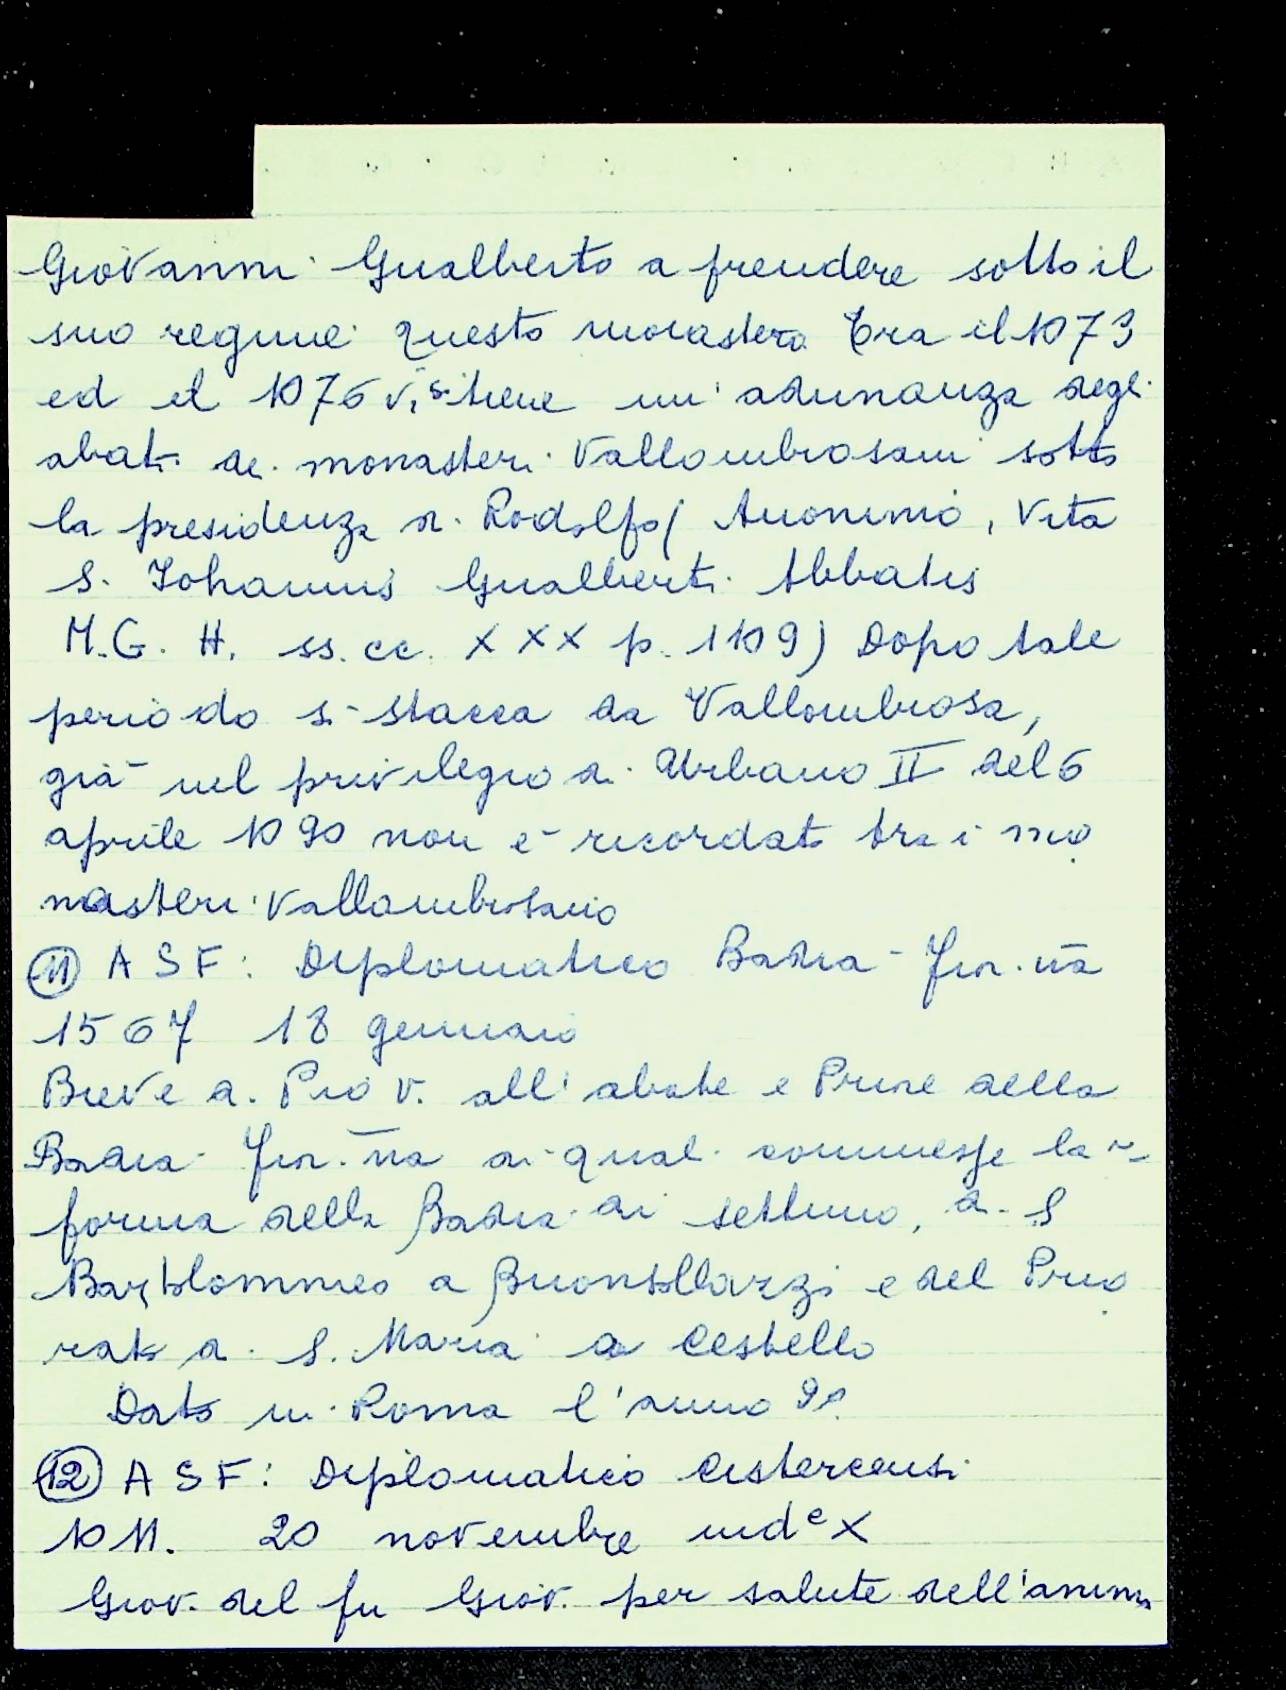 Giovanni Gualberto a prendere sotto il
suo regime questo monastero Era il 1073
ed el 1076 vi si tiene un'adunanza degli
abati dei monasteri Vallombrosani sotto
la presidenza di Rodolfo ( Anonimo, Vita
S. Iohannis Gualberti Abbatis
M.G.H. ss. cc. XXX p. 1109) Dopo tale
periodo si stacca da Vallombrosa,
già nel privilegio di Urbano II del 6
aprile 1090 non è ricordato tra i mo
nasteri vallombrosano
11 A S F: Diplomatico Badia Fior.na
1567 18 gennaio
Breve di Pio V. all'abate e Priore della
Badia Fior.na ai quali commesse la ri=
forma della Badia di Settimo, di S
Bartolommeo a Buonsollazzi e del Prio
rato di S. Maria a Cestello
Dato in Roma l'anno 2º
12 A S F: Diplomatico Cistercensi
1011. 20 novembre inde X
Giov. del fu Giov. per salute dell'anima